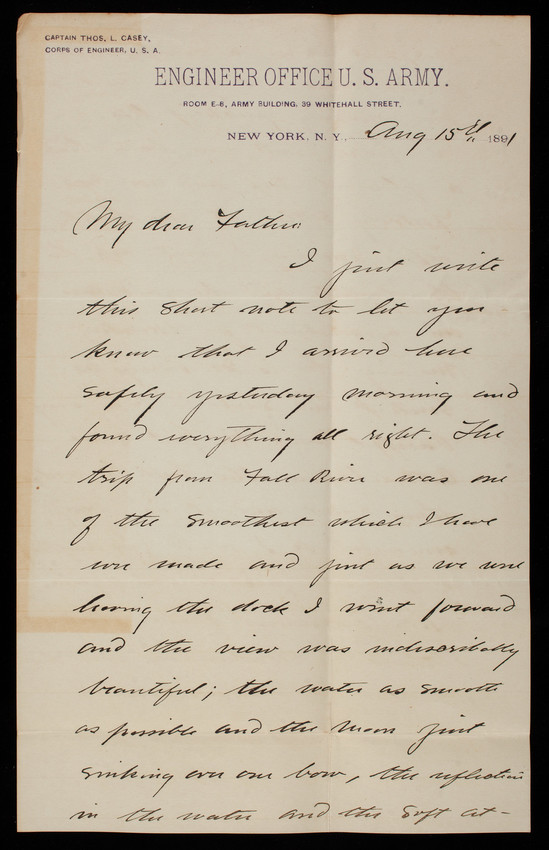 CAPTAIN THOS. L. CASEY,
CORPS OF ENGINEER, U. S. A.
ENGINEER OFFICE U. S. ARMY.
ROOM E-6, ARMY BUILDING, 39 WHITEHALL STREET,
NEW YORK, N. Y., Aug 15th 1891
My dear Father:
I just write
this short note to let you
know that I arrived here
safely yesterday morning and
found everything all right. The
trip from Fall River was one
of the smoothest which I have
ever made and just as we were
leaving the dock I went forward
and the view was indescribably
beautiful; the water as smooth
as possible and the moon just
sinking over our bow, the reflection
in the water and the soft at-